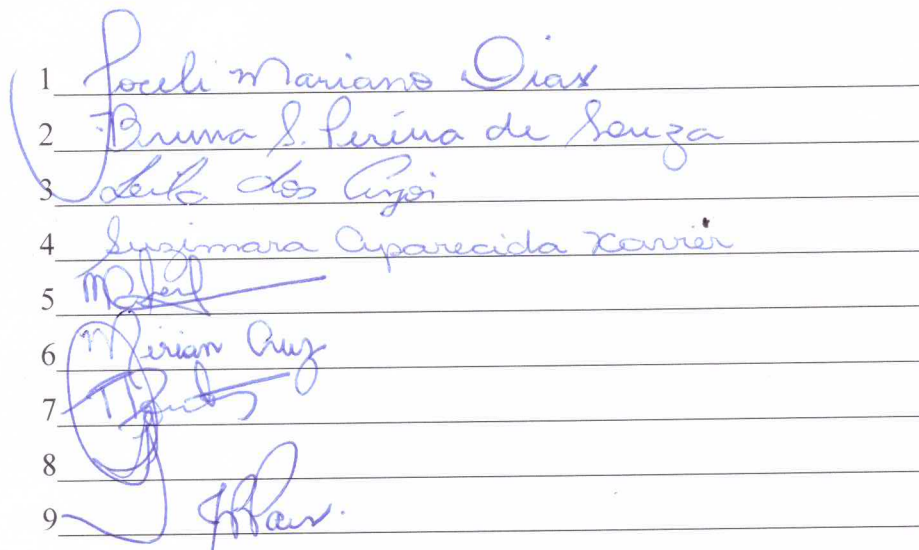 1 Joceli Mariano Dias
2 Bruna S. Pereira de Souza
3 Leila dos Anjos
4 Suzimara Aparecida Xavier
5
6 Mirian Cruz
7
8
9